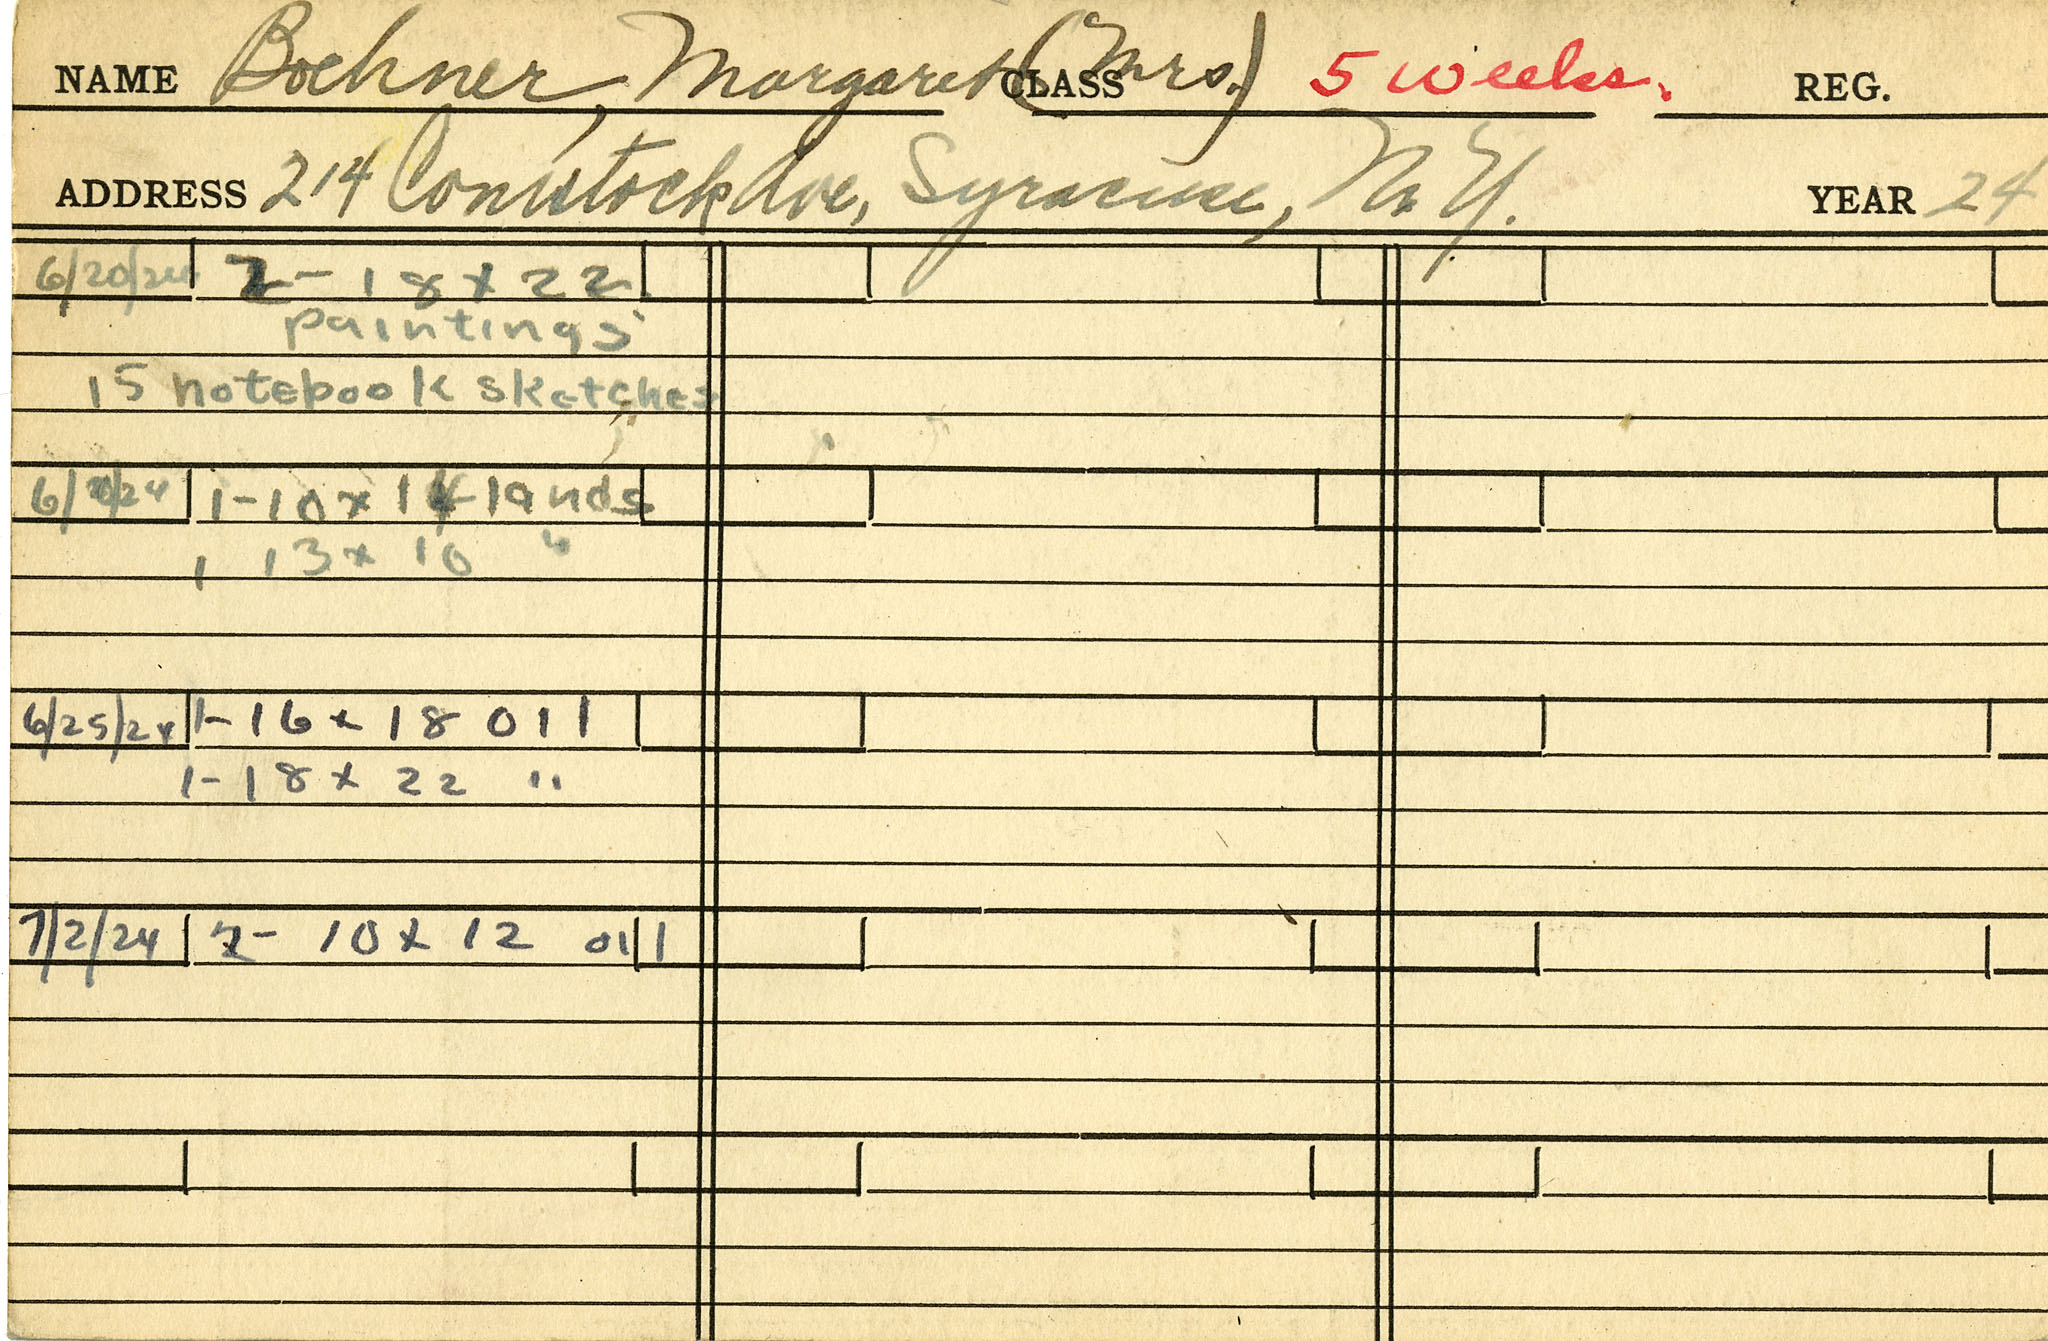 NAME Boehner, Margaret (Mrs.) CLASS 5 weeks. REG.
ADDRESS 214 Comstock Ave, Syracuse, N.Y. YEAR 24
6/20/24 2- 18 x 22
paintings
15 notebook sketches
6/ /24 1-10 x 14 lands
1 13 x 10 "
6/25/24 1-16 x 18 oil
1-18 x 22 "
7/2/24 2- 10 x 12 oil